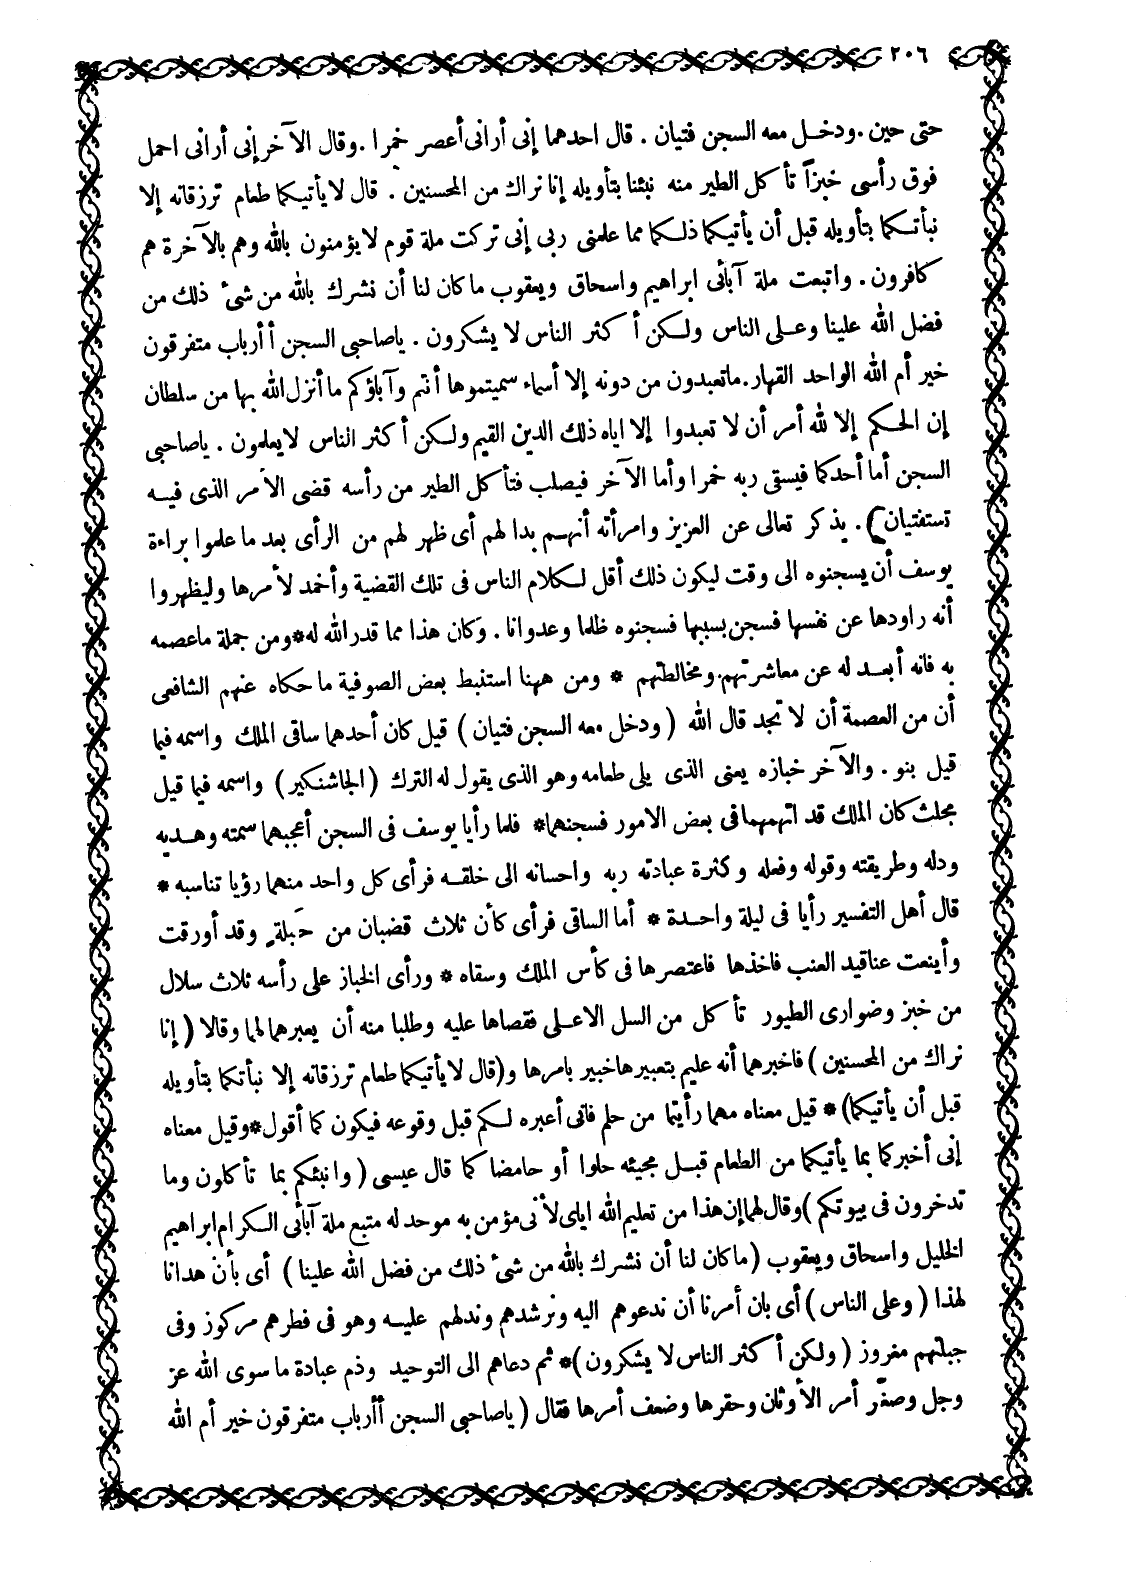 ٢٠٦
حتى حين .ودخل معه السجن فتيان . قال احدهما إنى أرانى أعصر خمرا .وقال الآخر إنى أرانى احمل
فوق رأسى خبزاً تأكل الطير منه نبئنا بتأويله إنا نراك من المحسنين . قال لا يأتيكما طعام ترزقانه إلا
نبأتكما بتأويله قبل أن يأتيكما ذلكما مما علمنى ربى إنى تركت ملة قوم لا يؤمنون بالله وهم بالآخرة هم
كافرون . واتبعت ملة آبائى ابراهيم واسحاق ويعقوب ما كان لنا أن نشرك بالله من شئ ذلك من
فضل الله علينا وعلى الناس ولكن أكثر الناس لا يشكرون . ياصاحبى السجن أأرباب متفرقون
خير أم الله الواحد القهار.ماتعبدون من دونه إلا أسماء سميتموها أنتم وآباؤكم ما أنزل الله بها من سلطان
إن الحكم إلا لله أمر أن لا تعبدوا إلا اياه ذلك الدين القيم ولكن أكثر الناس لايعلمون . ياصاحبى
السجن أما أحدكما فيسقى ربه خمرا وأما الآخر فيصلب فتأكل الطير من رأسه قضى الأمر الذى فيه
تستفتيان) . يذكر تعالى عن العزيز وامرأته أنهم بدا لهم أى ظهر لهم من الرأى بعد ما علموا براءة
يوسف أن يسجنوه الى وقت ليكون ذلك أقل لكلام الناس فى تلك القضية وأخمد لأمرها وليظهروا
أنه راودها عن نفسها فسجن بسببها فسجنوه ظلما وعدوانا . وكان هذا مما قدر الله له*ومن جملة ماعصمه
به فانه أبعد له عن معاشرتهم ومخالطتهم * ومن ههنا استنبط بعض الصوفية ما حكاه عنهم الشافعى
أن من العصمة أن لا تجد قال الله ( ودخل معه السجن فتيان ) قيل كان أحدهما ساقى الملك واسمه فيما
قيل بنو . والآخر خبازه يعنى الذى يلى طعامه وهو الذى يقول له الترك ( الجاشنكير ) واسمه فيما قيل
مجلث كان الملك قد اتهمهما فى بعض الامور فسجنهما* فلما رأيا يوسف فى السجن أعجبهما سمته وهديه
ودله وطريقته وقوله وفعله وكثرة عبادته ربه واحسانه الى خلقه فرأى كل واحد منهما رؤيا تناسبه *
قال أهل التفسير رأيا فى ليلة واحدة * أما الساقى فرأى كأن ثلاث قضبان من حَبلة وقد أورقت
وأينعت عناقيد العنب فاخذها فاعتصرها فى كأس الملك وسقاه * ورأى الخباز على رأسه ثلاث سلال
من خبز وضوارى الطيور تأكل من السل الاعلى فقصاها عليه وطلبا منه أن يعبرهما لهما وقالا ( إنا
نراك من المحسنين ) فاخبرهما أنه عليم بتعبيرها خبير بامرها و(قال لا يأتيكما طعام ترزقانه إلا نبأتكما بتأويله
قبل أن يأتيكما)* قيل معناه مهما رأيتما من حلم فانى أعبره لكم قبل وقوعه فيكون كما أقول*وقيل معناه
إنى أخبركما بما يأتيكما من الطعام قبل مجيئه حلوا أو حامضا كما قال عيسى ( وانبئكم بما تأكلون وما
تدخرون فى بيوتكم )وقال لهما إن هذا من تعليم الله اياى لأنى مؤمن به موحد له متبع ملة آبائى الكرام ابراهيم
الخليل واسحاق ويعقوب ( ما كان لنا أن نشرك بالله من شئ ذلك من فضل الله علينا ) أى بأن هدانا
لهذا ( وعلى الناس ) أى بان أمرنا أن ندعوهم اليه ونرشدهم وندلهم عليه وهو فى فطرهم مركوز وفى
جبلتهم مغروز ( ولكن أكثر الناس لا يشكرون )* ثم دعاهم الى التوحيد وذم عبادة ما سوى الله عز
وجل وصغّر أمر الأوثان وحقرها وضعف أمرها فقال ( ياصاحبى السجن أأرباب متفرقون خير أم الله